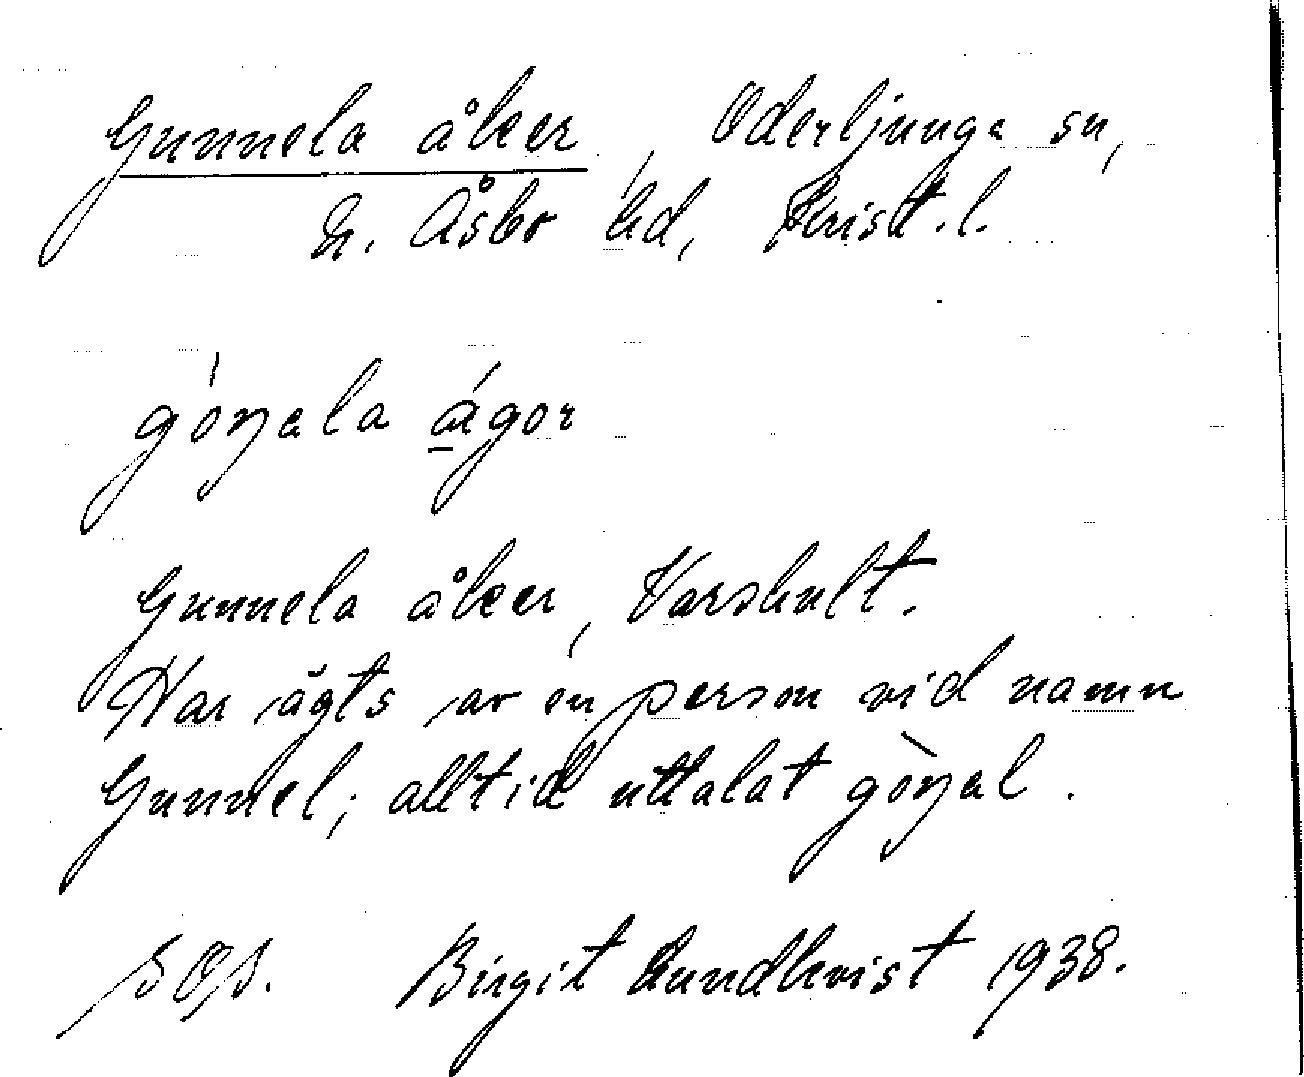 Gunnela åker, Oderljunga sn,
N. Åsbo hd, Krist. l.
góŋala ágor
Gunnela åker, Varshult.
Har ägts av en person vid namn
Gunnel; alltid uttalat gòŋal.
Birgit Lundkvist 1938.